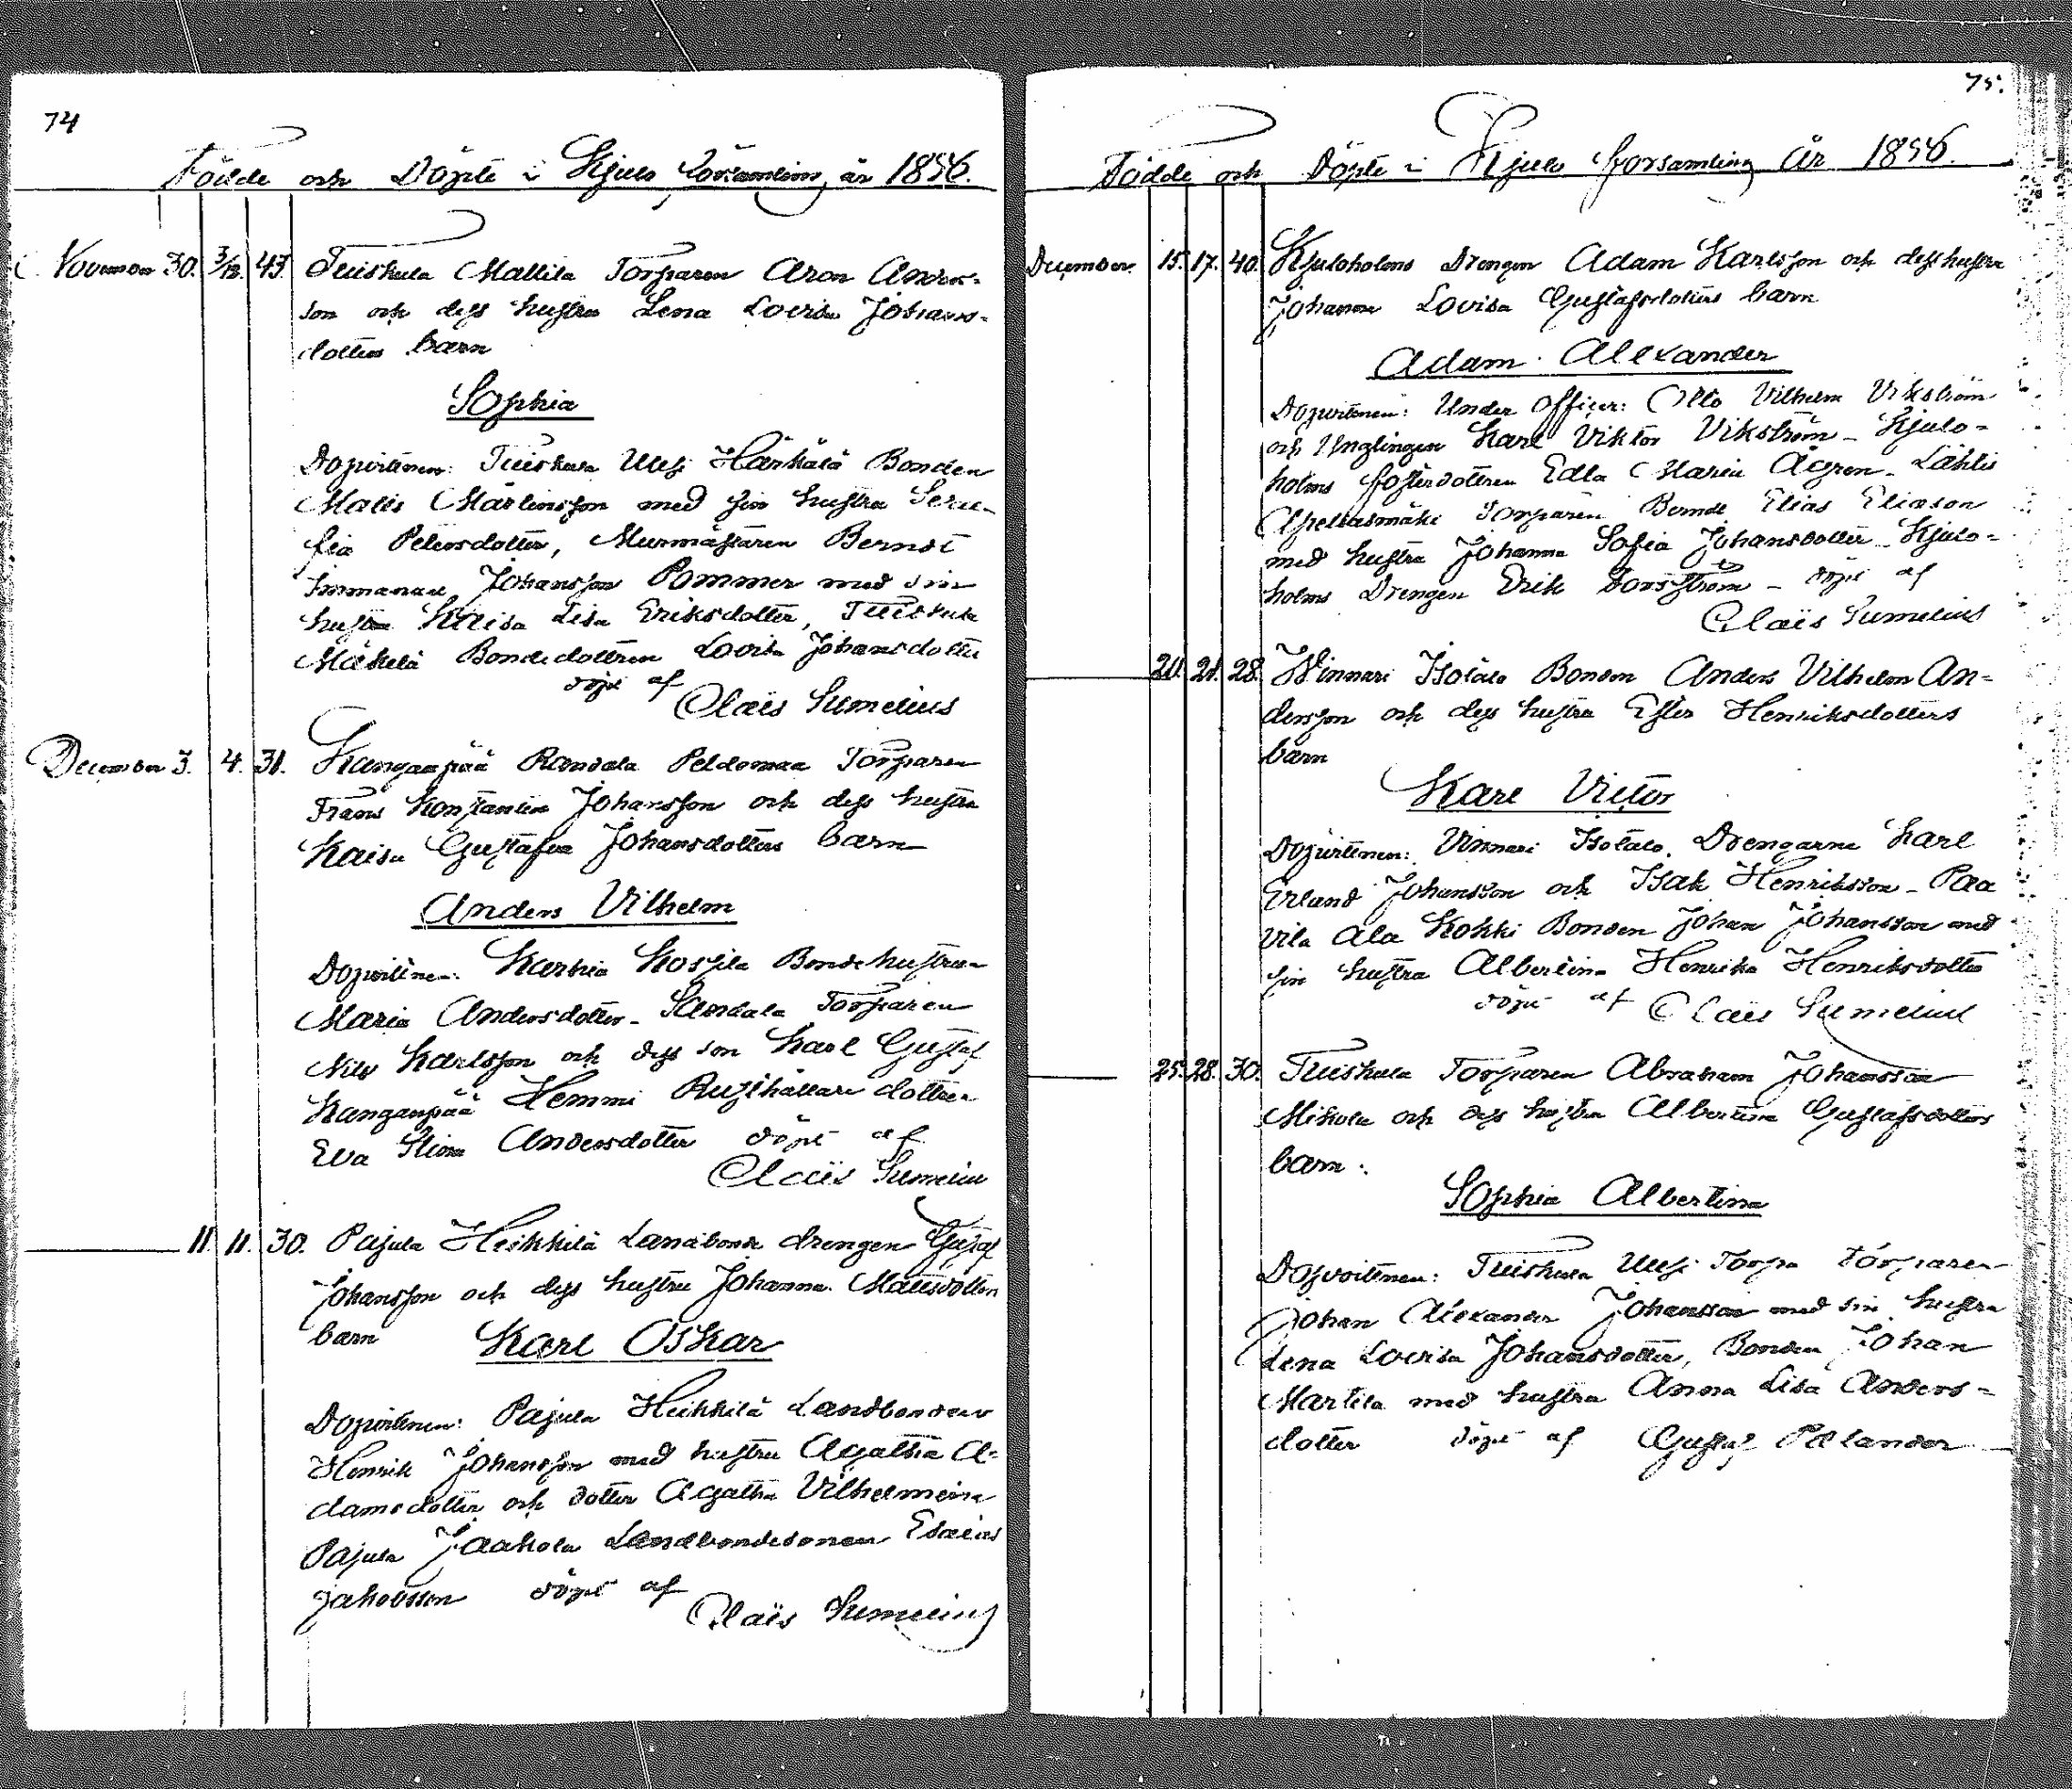 74
Födde och Döpte i Kjulo Församling år 1856.
November 30. 3/12. 43. Tuiskula Mattila Torparen Aron Anders-
son och dess hustru Lena Lovisa Johans-
dotters barn
Sophia
Dopvittnen: Tuiskula Uusi Härkälä Bonden
Matts Mårtensson med sin hustru Sera-
fia Petersdotter, Murmästaren Berndt
Immanuel Johansson Pommer med sin
hustru Kaisa Lisa Eriksdotter, Tuiskula
Mäkelä Bondedottren Lovisa Johansdotter
döpt af
Claës Sumelius
December 3. 4. 31. Kangaanpää Randala Peldomaa Torparen
Frans Konstantin Johansson och dess hustru
Kaisa Gustafva Johansdotters barn
Anders Vilhelm
Dopvittnen: Karhia Bondehustrun
Maria Andersdotter - Sandala Torparen
Nils Karlsson och dess son Karl Gustaf
Kangaanpää Hemmi Rusthållare dottren
Eva Stina Andersdotter döpt af
Claës Sumelius
11. 11. 30. Pajula Heikkilä Landbonde drengen Gustaf
Johansson och dess hustru Johanna Mattsdotters
barn
Karl Oskar
Dopvittnen: Pajula Heikkilä Landbonden
Henrik Johansson med hustru Agatha A-
damsdotter och dotter Agatha Vilhelmina
Pajula Jaakola Landbondesonen Esaias
Jakobsson döpt af
Claës Sumelius
75.
Födde och Döpte i Kjulo församling år 1856.
December. 15. 17. 40. Kjuloholms Drengen Adam Karlsson och dess hustru
Johanna Lovisa Gustafsdotters barn
Adam Alexander
Dopvittnen: Under Officer: Otto Vilhelm Vikström
och Ynglingen Karl Viktor Vikström - Kjulo-
holms fosterdottren Edla Maria Ågren - Lähtis
Torparen Berndt Elias Eliason
med hustru Johanna Sofia Johansdotter - Kjulo-
holms Drengen Erik Forsström - döpt af
Claës Sumelius
20. 21. 28. Winnari Isotalo Bonden Anders Vilhelm An-
dersson och dess hustru Ester Henriksdotters
barn
Karl Victor
Dopvittnen: Vinnari Isotalo. Drengarne Karl
Erland Johansson och Isak Henriksson - Paa
vila Ala Kokki Bonden Johan Johansson med
sin hustru Albertina Henrika Henriksdotter
döpt af Claës Sumelius
25. 28. 30. Tuiskula Torparen Abraham Johansson
Mikola och dess hustru Albertina Gustafsdotters
barn:
Sophia Albertina
Dopvittnen: Tuiskula Uusi Torpa torparen
Johan Alexander Johansson med sin hustru
Lena Lovisa Johansdotter, Bonden Johan
Martila med hustru Anna Lisa Anders-
dotter döpt af Gustaf Polander